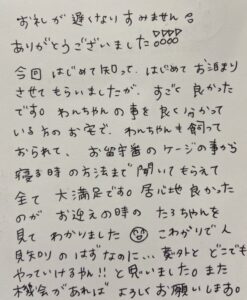 お礼が遅くなりすみません
ありがとうございました!!!!
今回はじめて知って、はじめてお泊まり
させてもらいましたが、すごく良かった
です。わんちゃんの事を良く分かって
いる方のお宅で、わんちゃんも飼って
おられて、お留守番のケージの事から
寝る時の方法まで聞いてもらえて
全て大満足です。居心地良かった
のがお迎えの時のたろちゃんを
見てわかりました こわがりで人
見知りのはずなのに…意外とどこでも
やっていけるやん!!と思いました。また
機会があればよろしくお願いします。